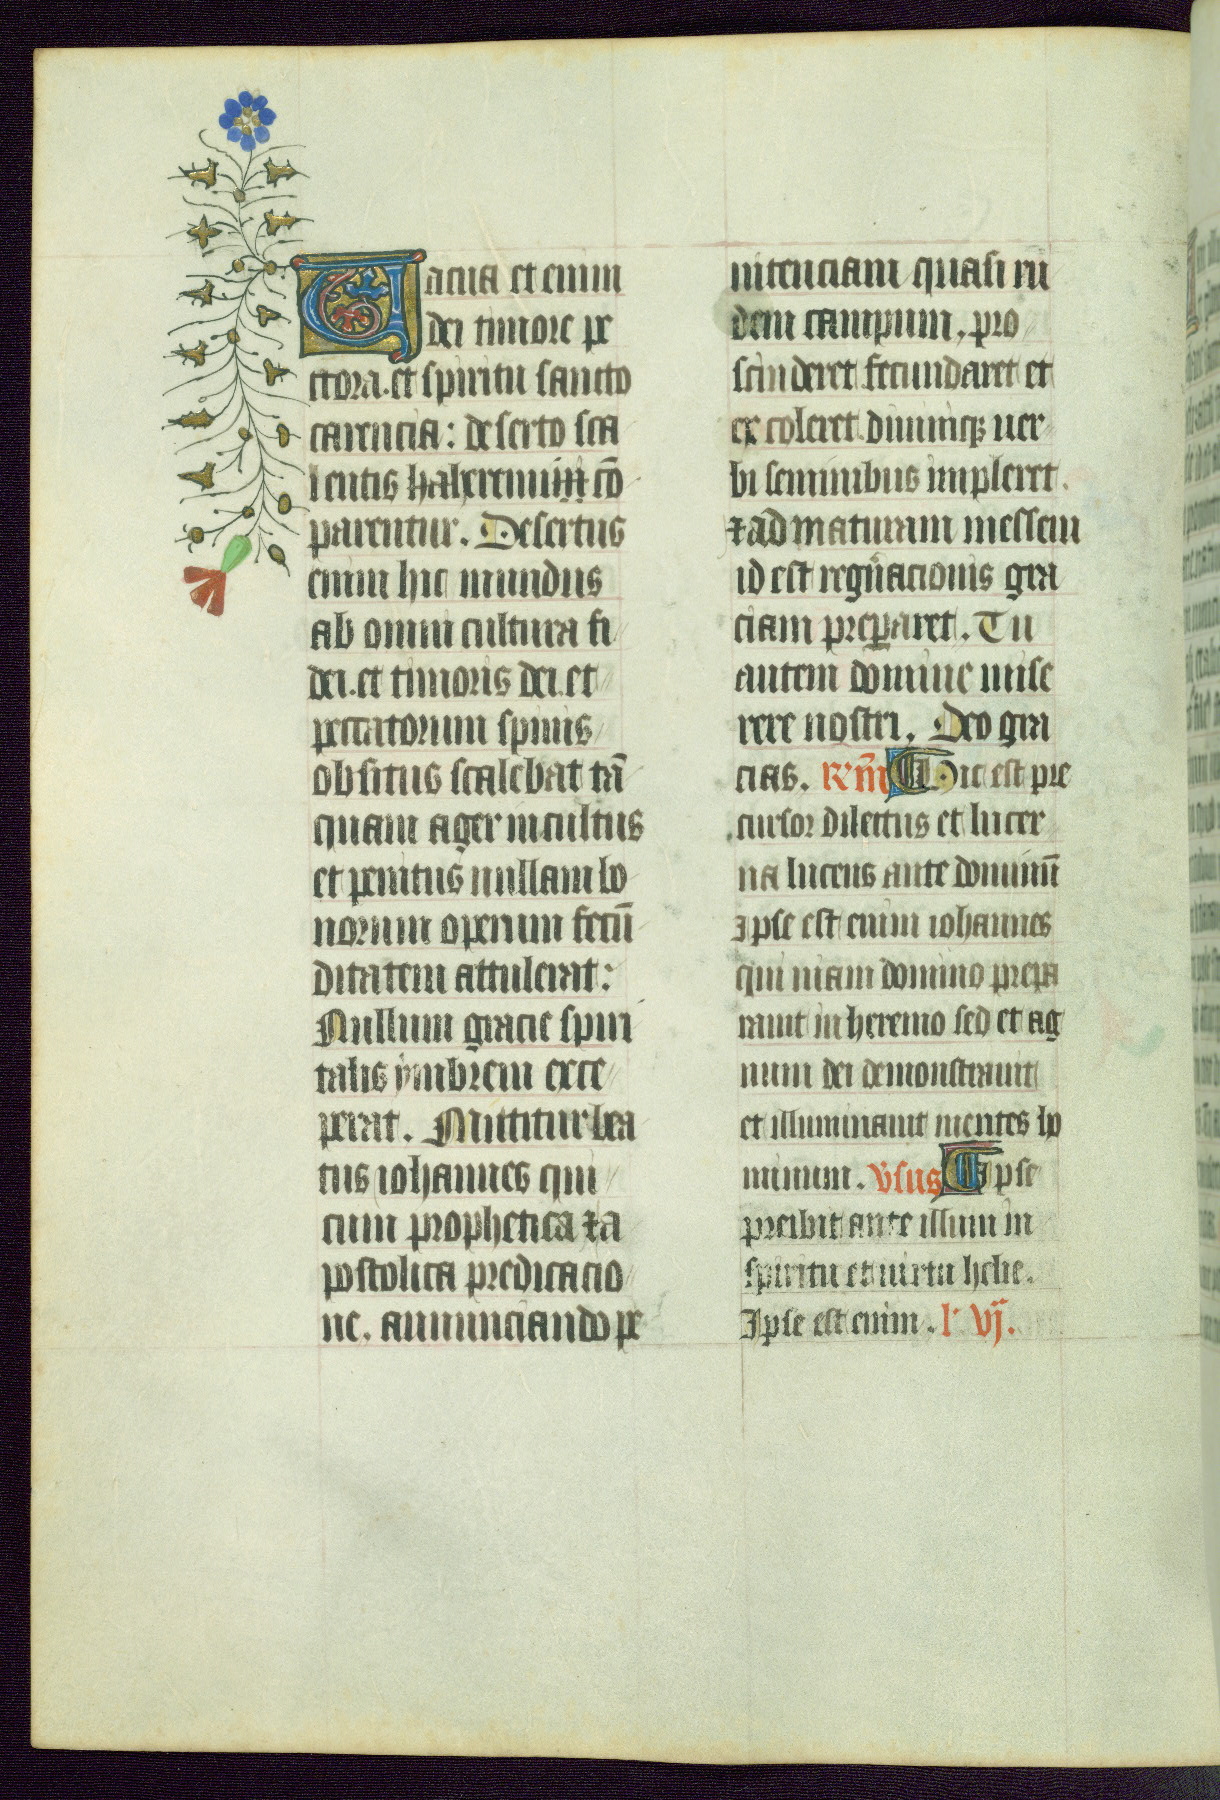 Vacua et enim
dei timore pe
ctora. et spiritu sancto
carencia: deserto sca
lentis haberemini cō
parentur. Desertus
enim hic mundus
ab omni cultura fi
dei. et timoris dei. et
peccatorum spinis
obsitus scalebat tā
quam ager incultus
et penitus nullam bo
norum operum fecū
ditatem attulerat:
Nullum gracie spiri
talis ymbrem exce
perat. Mittitur bea
tus iohannes qui
cum prophetica ⁊ a
postolica predicacio
ne. annunciando pe
nitenciam quasi ru
dem campum, pro
scinderet fecundaret et
ex coleret diuiniqꝫ uer
bi seminibus impleret.
⁊ ad maturam messem
id est regnacionis gra
ciam preparet. Tu
autem domine mise
rere nostri. Deo gra
cias. Rm̄ Hic est pre
cursor dilectus et lucer
na lucens ante dominū
Ipse est enim iohannes
qui uiam domino prepa
rauit in heremo sed et ag
num dei demonstrauit
et illuminauit mentes ho
minum. v̄sus Ipse
preibit ante illum in
spiritu et uirtu helie.
Ipse est enim. l' vj.